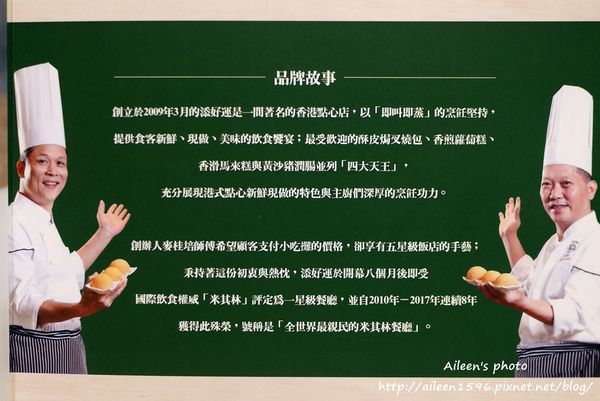 品牌故事
創立於2009年3月的添好運是一間著名的香港點心店，以「即叫即蒸」的烹飪堅持，
提供食客新鮮、現做、美味的飲食饗宴；最受歡迎的酥皮焗叉燒包、香煎蘿蔔糕、
香滑馬來糕與黃沙豬潤腸並列「四大天王」，
充分展現港式點心新鮮現做的特色與主廚們深厚的烹飪功力。
創辦人麥桂培師傅希望顧客支付小吃攤的價格，卻享有五星級飯店的手藝；
秉持著這份初衷與熱忱，添好運於開幕八個月後即受
國際飲食權威「米其林」評定為一星級餐廳，並自2010年－2017年連續8年
獲得此殊榮，號稱是「全世界最親民的米其林餐廳」。
Aileen's photo
http://aileen1596.pixnet.net/blog/